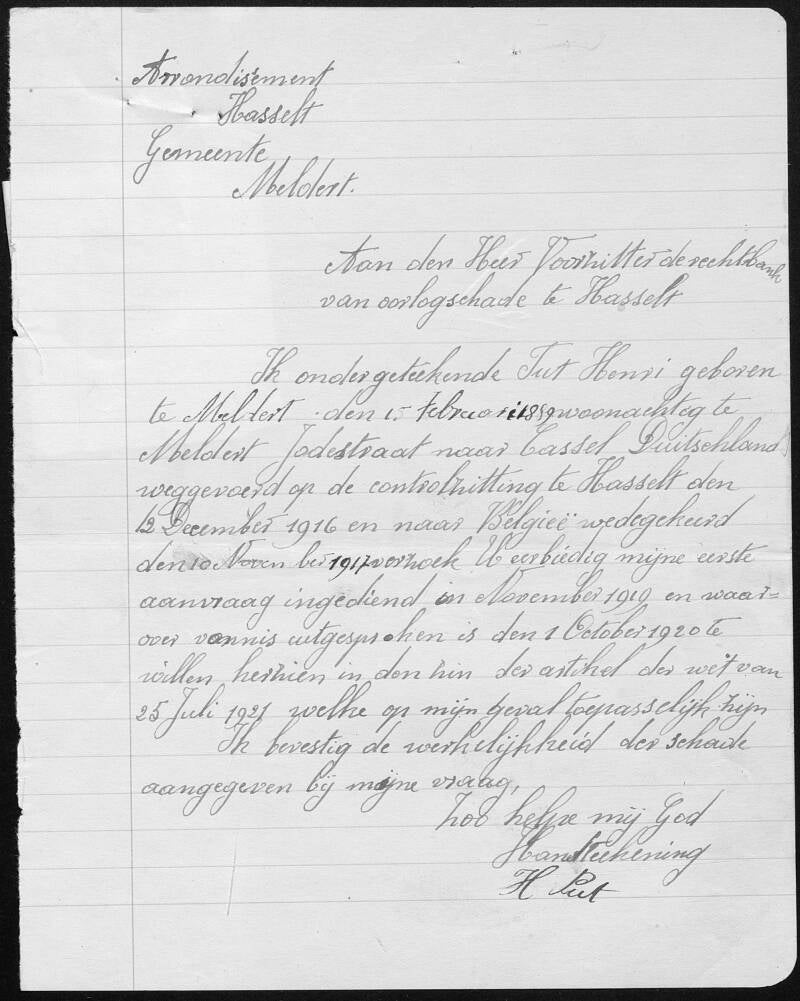 Arrondisement
Hasselt
Gemeente
Meldert.
Aan den Heer Voorzitter de rechtbank
van oorlogschade te Hasselt
Ik ondergeteekende Put Henri geboren
te Meldert den 15 februari 1889 woonachteg te
Meldert Jodestraat naar Cassel Duitschland
weggevoerd op de controlzitting te Hasselt den
12 December 1916 en naar Belgieë wedegekeerd
den 10 November 1917 verzoek U eerbiedig mijne eerste
aanvraag ingediend in November 1919 en waar=
over vonnis uitgesproken is den 1 October 1920 te
willen herzien in den zin der artikel der wet van
25 Juli 1921 welke op mijn geval toepasselijk zijn
Ik bevestig de werkelijkheid der schade
aangegeven bij mijne vraag,
Zoo helpe mij God
Handteekening
H Put